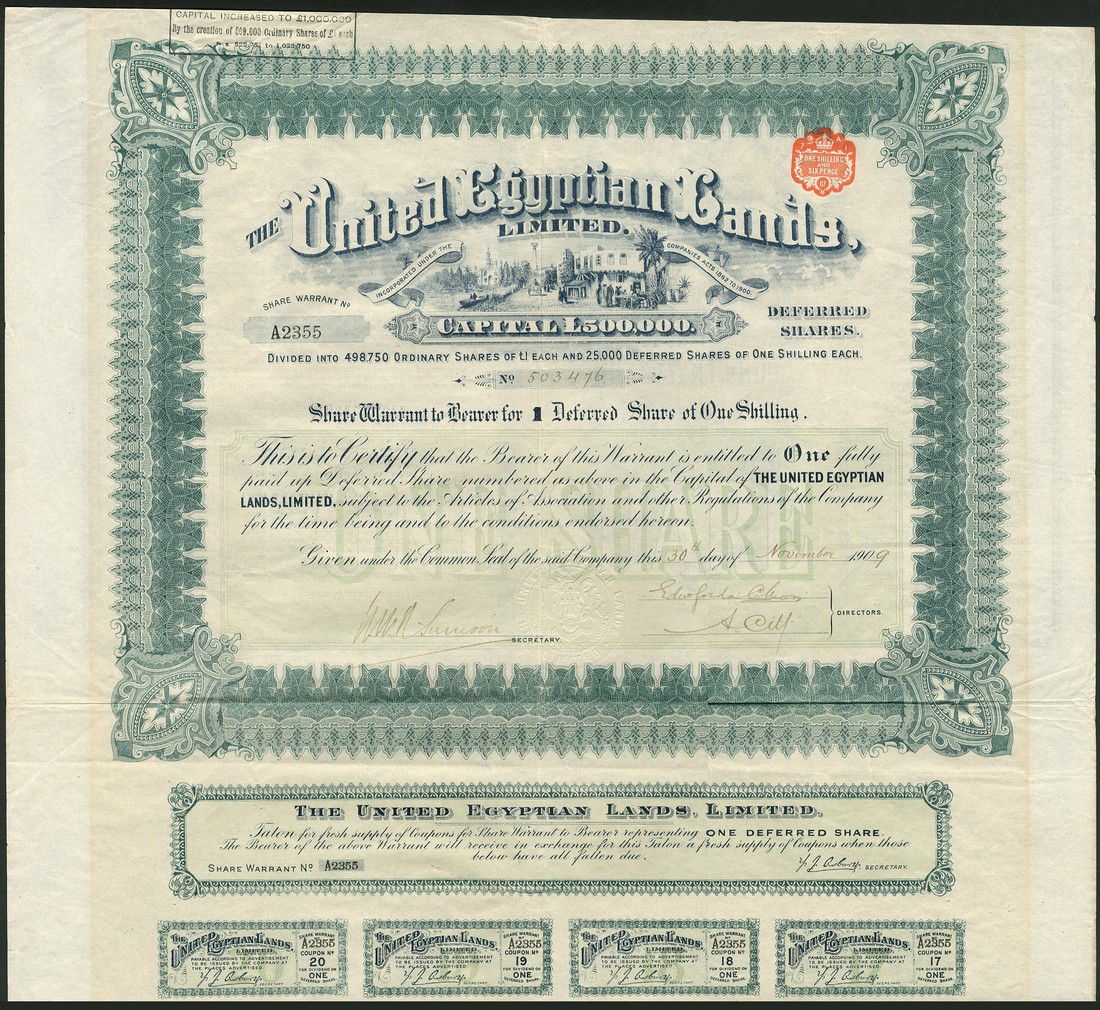 CAPITAL INCREASED TO £1,000,000
By the creation of 500,000 Ordinary Shares of £1 each
to 1,023,750
ONE SHILLING
AND
SIX PENCE
07
THE United Egyptian Lands,
LIMITED.
INCORPORATED UNDER THE COMPANIES ACTS 1862 TO 1900.
SHARE WARRANT No
A2355
CAPITAL £500,000.
DEFERRED
SHARES.
DIVIDED INTO 498,750 ORDINARY SHARES OF £1 EACH AND 25,000 DEFERRED SHARES OF ONE SHILLING EACH.
No 503476
Share Warrant to Bearer for 1 Deferred Share of One Shilling.
This is to Certify that the Bearer of this Warrant is entitled to One fully
paid up Deferred Share numbered as above in the Capital of THE UNITED EGYPTIAN
LANDS, LIMITED, subject to the Articles of Association and other Regulations of the Company
for the time being and to the conditions endorsed hereon
Given under the Common Seal of the said Company this 30th day of November 1909
ONE SHARE
SECRETARY.
DIRECTORS.
THE UNITED EGYPTIAN LANDS, LIMITED.
Talon for fresh supply of Coupons for Share Warrant to Bearer representing ONE DEFERRED SHARE.
The Bearer of the above Warrant will receive in exchange for this Talon a fresh supply of Coupons when those
below have all fallen due.
SHARE WARRANT No A2355
SECRETARY.
THE UNITED EGYPTIAN LANDS,
LIMITED.
PAYABLE ACCORDING TO ADVERTISEMENT
TO BE ISSUED BY THE COMPANY AT
THE PLACES ADVERTISED.
SECRETARY
SHARE WARRANT
A2355
COUPON No
20
FOR DIVIDEND ON
ONE
DEFERRED SHARE.
THE UNITED EGYPTIAN LANDS,
LIMITED.
PAYABLE ACCORDING TO ADVERTISEMENT
TO BE ISSUED BY THE COMPANY AT
THE PLACES ADVERTISED.
SECRETARY
SHARE WARRANT
A2355
COUPON No
19
FOR DIVIDEND ON
ONE
DEFERRED SHARE.
THE UNITED EGYPTIAN LANDS,
LIMITED.
PAYABLE ACCORDING TO ADVERTISEMENT
TO BE ISSUED BY THE COMPANY AT
THE PLACES ADVERTISED.
SECRETARY
SHARE WARRANT
A2355
COUPON No
18
FOR DIVIDEND ON
ONE
DEFERRED SHARE.
THE UNITED EGYPTIAN LANDS,
LIMITED.
PAYABLE ACCORDING TO ADVERTISEMENT
TO BE ISSUED BY THE COMPANY AT
THE PLACES ADVERTISED.
SECRETARY
SHARE WARRANT
A2355
COUPON No
17
FOR DIVIDEND ON
ONE
DEFERRED SHARE.